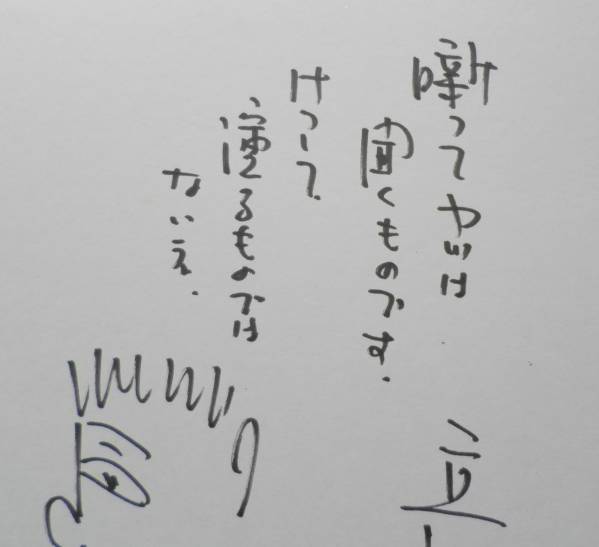 噺ってやつは
聞くものです.
けっして
演るものでは
ないネ.